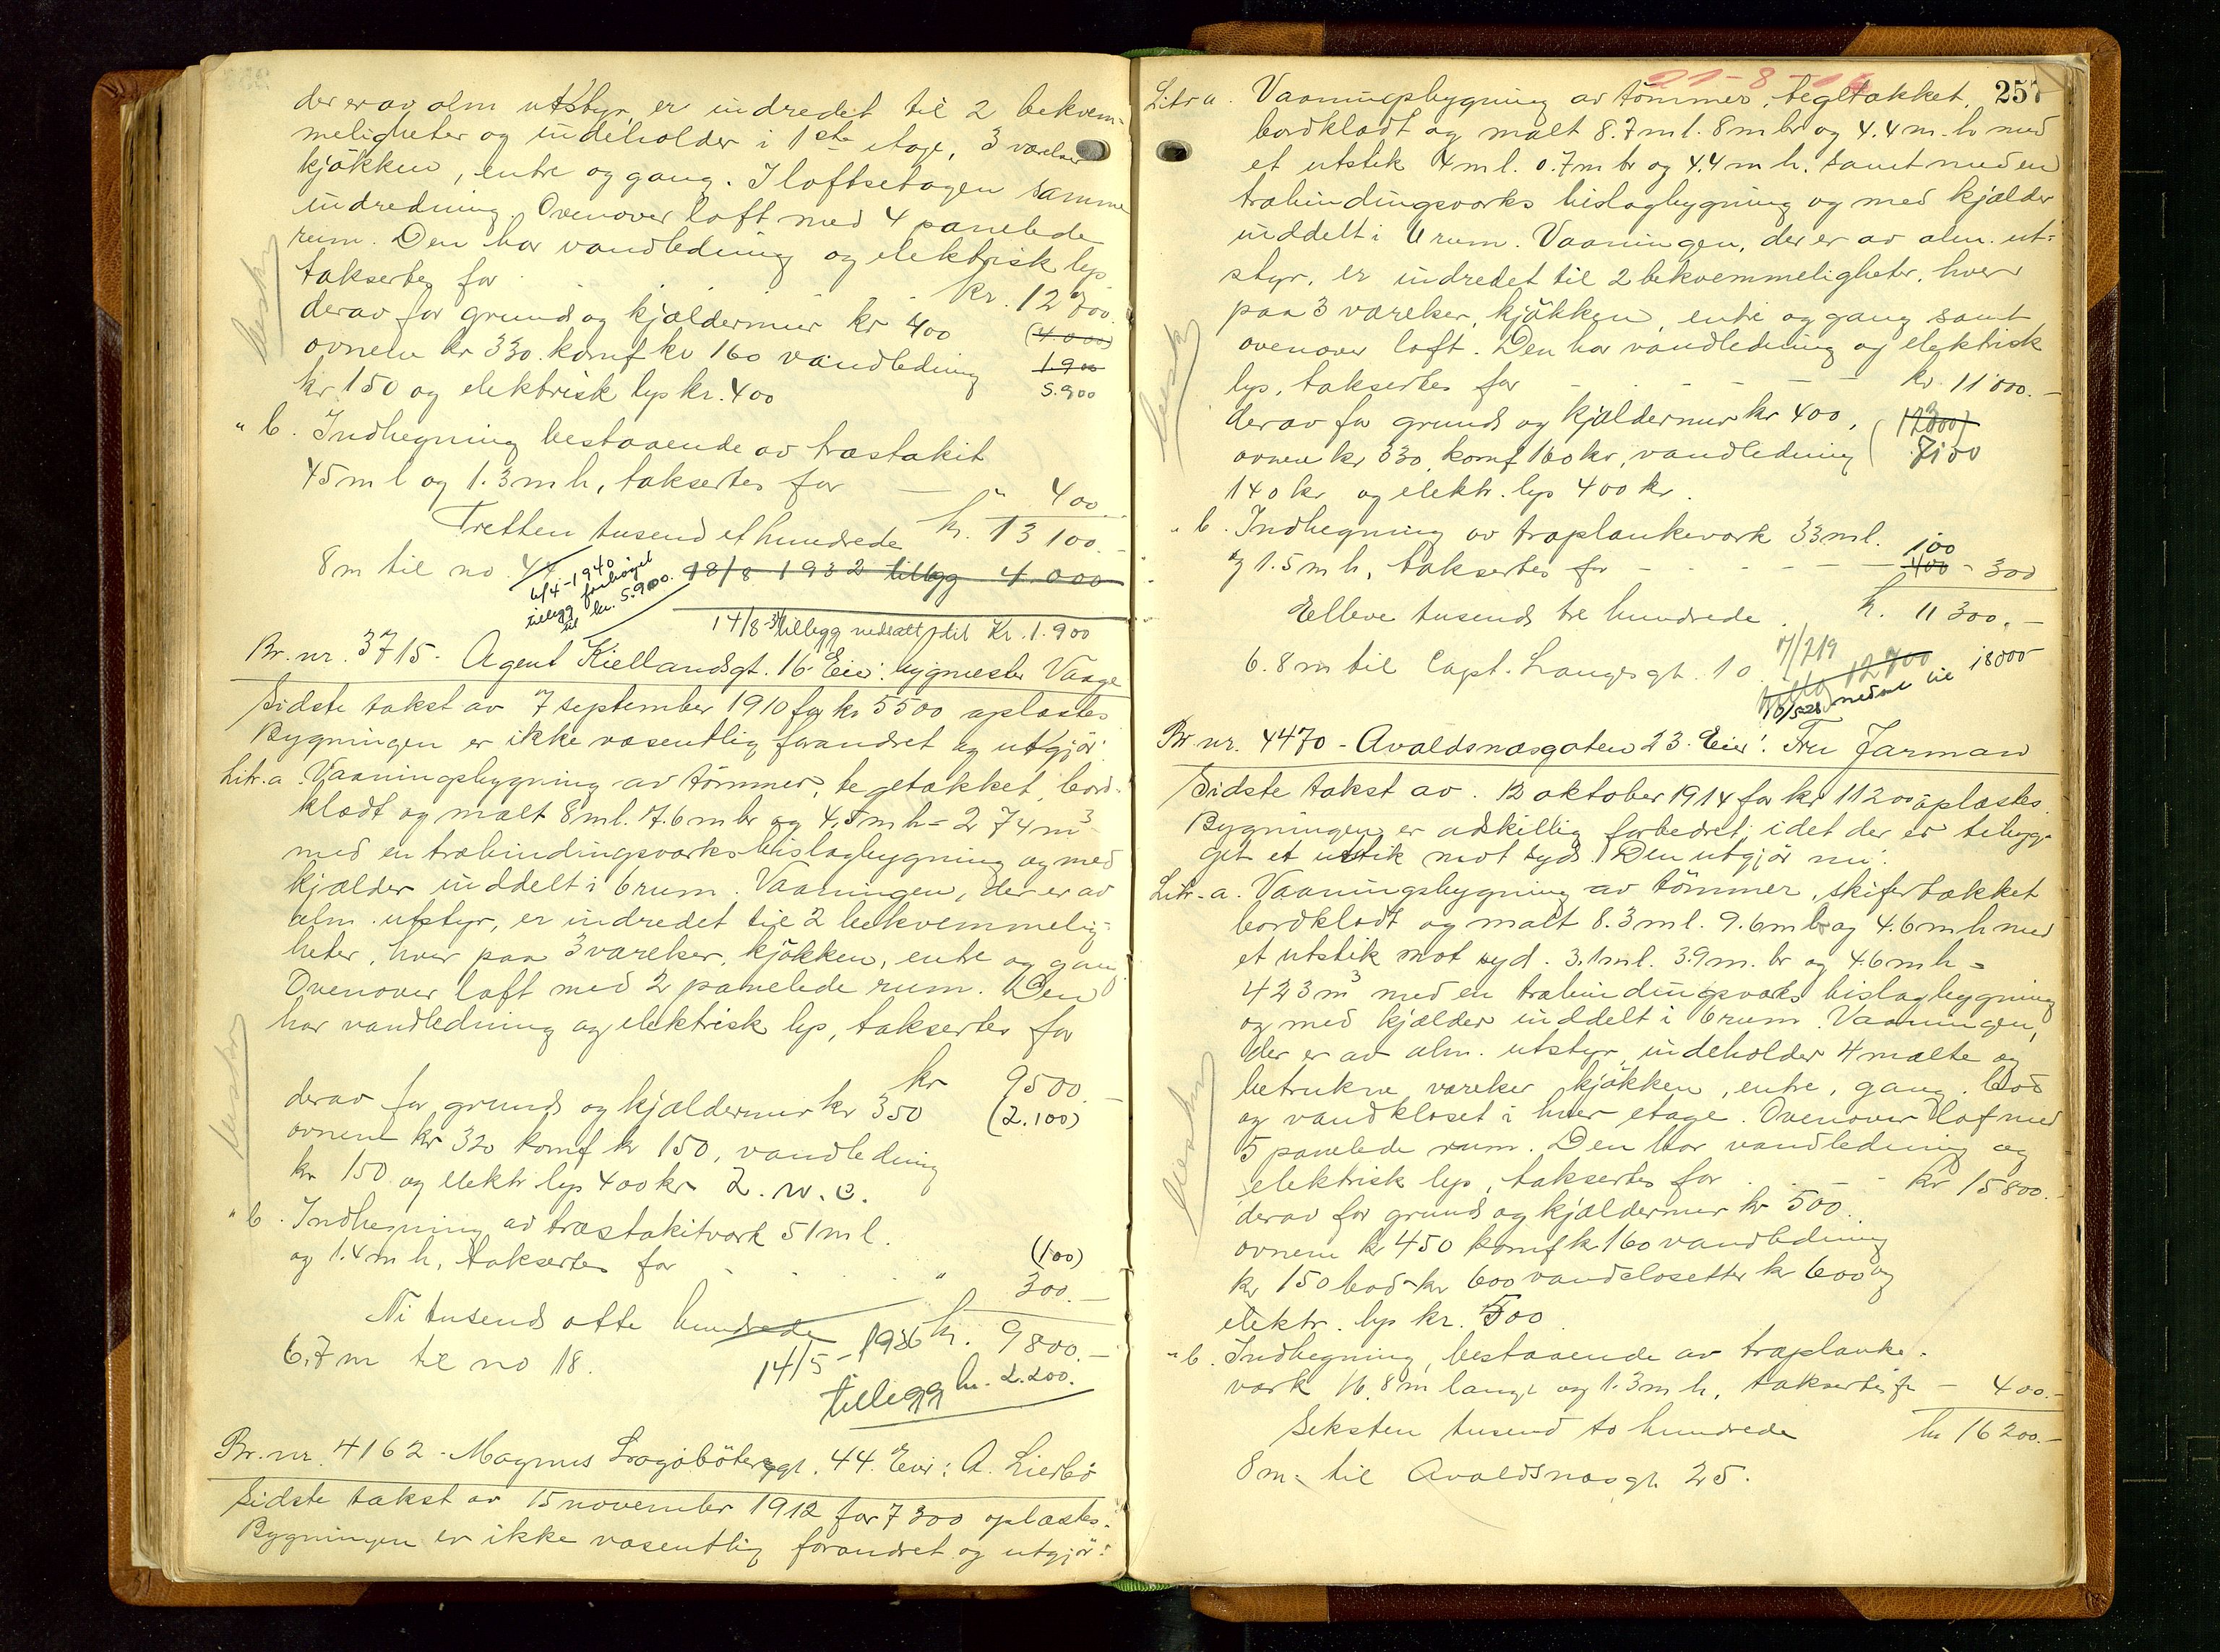 der er av alm utstyr, er indredet til 2 bekvem-
meligheter og indeholder i 1ste etage, 3 værelser
kjökken, entre og gang. I loftsetagen samme
indredning. Ovenover loft med 4 panelede
rum. Den har vandledning og elektrisk lys
taksertes for kr. 12700.
derav for grund og kjældermur kr 400 (4000)
ovnene kr 330. komf kr 160 vandledning 1.900
kr 150 og elektrisk lys kr. 400 5.900
" b. Indhegning bestaaende av træstakit
45 m l og 1.3 m h, taksertes for " 400.
Tretten tusend et hundrede kr. 13100.-
8 m til no 47 18/8 1932 tillegg 4.000
6/4-1940
tillegg forhöiet
til kr. 5.900.
14/8-34 tillegg nedsatt til Kr. 1.900
Br. nr. 3715. Agent Kiellandsgt. 16. Eier: bygmester Vaage
Sidste takst av 7 september 1910 for kr 5500 oplæstes
Bygningen er ikke væsentlig forandret og utgjör:
Litr. a. Vaaningsbygning av tömmer, tegltækket, bord-
klædt og malt 8 m l. 7.6 m br og 4.5 m h = 274 m3
med en træbindingsværks bislagbygning og med
kjælder inddelt i 6 rum. Vaaningen, der er av
alm. utstyr, er indredet til 2 bekvemmelig-
heter, hver paa 3 værelser, kjökken, entre og gang
Ovenover loft med 2 panelede rum. Den
har vandledning og elektrisk lys, taksertes for
kr 9500.-
derav for grund og kjældermur kr 350 (2.100)
ovnene kr 320 komf kr 150, vandledning
kr 150 og elektr lys 400 kr 2. w.c.
" b. Indhegning av træstakitværk 51 m l.
og 1.4 m h, taksertes for (100)
" 300.-
Ni tusend otte hundrede kr. 9800.-
6.7 m til no 18. 14/5-1936
tillegg kr. 2.200.
Br. nr. 4162 - Magnus Lagaböters gt. 44. Eier: A. Lierbö
Sidste takst av 15 november 1912 for 7300 oplæstes.
Bygningen er ikke væsentlig forandret og utgjör:
21-8-16
257
Litr a. Vaaningsbygning av tömmer, tegltækket,
bordklædt og malt 8.7 m l. 8 m br og 4.4 m. h med
et utstik 4 m l. 0.7 m br og 4.4 m h. samt med en
træbindingsværks bislagbygning og med kjælder
inddelt i 6 rum. Vaaningen, der er av alm. ut-
styr, er indredet til 2 bekvemmeligheter, hver
paa 3 værelser, kjökken, entre og gang samt
ovenover loft. Den har vandledning og elektrisk
lys, taksertes for kr. 11000.-
derav for grund og kjældermur kr 400,
ovnene kr 330, komf 160 kr, vandledning 7100
140 kr og elektr. lys 400 kr.
" b. Indhegning av træplankeværk 33 m l. 100
og 1.5 m h, taksertes for 400 - 300
Elleve tusend tre hundrede kr. 11300.-
6.8 m til Capt. Langes gt. 10. 17/219
tillæg 12700
10/5-28 nedsat til 18000
Br. nr. 4470 - Avaldsnæsgaten 23. Eier: Fru Jarman
Sidste takst av 12 oktober 1914 for kr 11200 oplæstes.
Bygningen er adskillig forbedret, idet der er tilbyg-
get et utstik mot syd. Den utgjör nu:
Litr. a. Vaaningsbygning av tömmer, skifertækket
bordklædt og malt 8.3 m l. 9.6 m br og 4.6 m h med
et utstik mot syd. 3.1 m l. 3.9 m. br og 4.6 m h =
423 m3 med en træbindingsværks bislagbygning
og med kjælder inddelt i 6 rum. Vaaningen,
der er av alm. utstyr, indeholder 4 malte og
betrukne værelser, kjökken, entre, gang, bad
og vandkloset i hver etage. Ovenover loft med
5 panelede rum. Den har vandledning og
elektrisk lys, taksertes for kr 15800.-
derav for grund og kjældermur kr 500.
ovnene kr 450 komf kr 160 vandledning
kr 150 bad - kr 600 vandclosetter kr 600 og
elektr. lys kr. 500
" b. Indhegning, bestaaende av træplanke-
værk 16.8 m langt og 1.3 m h, taksertes for - 400.-
Seksten tusend to hundrede kr 16200.-
8 m til Avaldsnæsgt. 25.